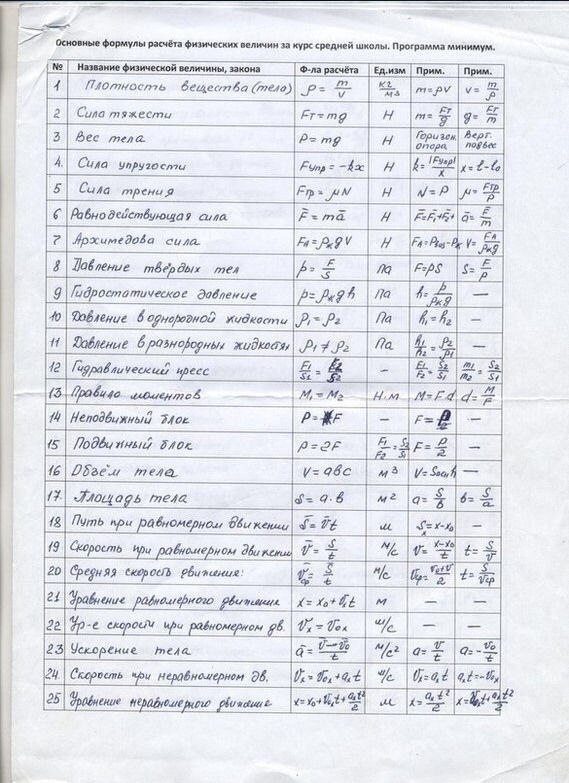 Основные формулы расчёта физических величин за курс средней школы. Программа минимум.
№ Название физической величины, закона Ф-ла расчёта Ед.изм Прим. Прим.
1 Плотность вещества (тела) ρ = m/v кг/м3 m = ρV v = m/ρ
2 Сила тяжести Fт = mg Н m = Fт/g g = Fт/m
3 Вес тела P = mg Н Горизон. опора Верт. подвес
4. Сила упругости Fупр = -kx Н k = |Fупр|/x x = l - l₀
5 Сила трения Fтр = μN Н N = P μ = Fтр/P
6 Равнодействующая сила F̄ = mā Н F̄ = F̄₁ + F̄₂ ā = F̄/m
7 Архимедова сила FA = ρжgV Н V = FA/ρжg
8 Давление твёрдых тел p = F/S Па F = pS S = F/p
9 Гидростатическое давление p = ρжgh Па h = p/ρжg —
10 Давление в однородной жидкости ρ₁ = ρ₂ Па h₁ = h₂ —
11 Давление в разнородных жидкостях ρ₁ ≠ ρ₂ Па h₁/h₂ = ρ₂/ρ₁ —
12 Гидравлический пресс F₁/S₁ = F₂/S₂ - F₁/F₂ = S₂/S₁ m₁/m₂ = S₂/S₁
13 Правило моментов M₁ = M₂ Н·м M = F·d d = M/F
14 Неподвижный блок P = F — F = P —
15 Подвижный блок P = 2F F₁/F₂ = S₂/S₁ F = P/2 —
16 Объём тела V = abc м³ V = Sоснh —
17. Площадь тела S = a·b м² a = S/b b = S/a
18 Путь при равномерном движении S̄ = v̄t м Sₓ = x - x₀ -
19 Скорость при равномерном движении v̄ = S̄/t м/с v = x-x₀/t t = S/v
20 Средняя скорость движения: v̄ср = S̄/t м/с vср = v₀+v/2 t = S/vср
21 Уравнение равномерного движения x = x₀ + vₓt м — —
22 Ур-е скорости при равномерном дв. vₓ = v₀ₓ м/с — —
23 Ускорение тела ā = v̄-v̄₀/t м/с² a = v/t a = -v₀/t
24. Скорость при неравномерном дв. vₓ = v₀ₓ + aₓt м/с vₓ = aₓt aₓt = -v₀ₓ
25 Уравнение неравномерного движения x = x₀ + v₀ₓt + aₓt²/2 м x = aₓt²/2 x = v₀ₓt + aₓt²/2